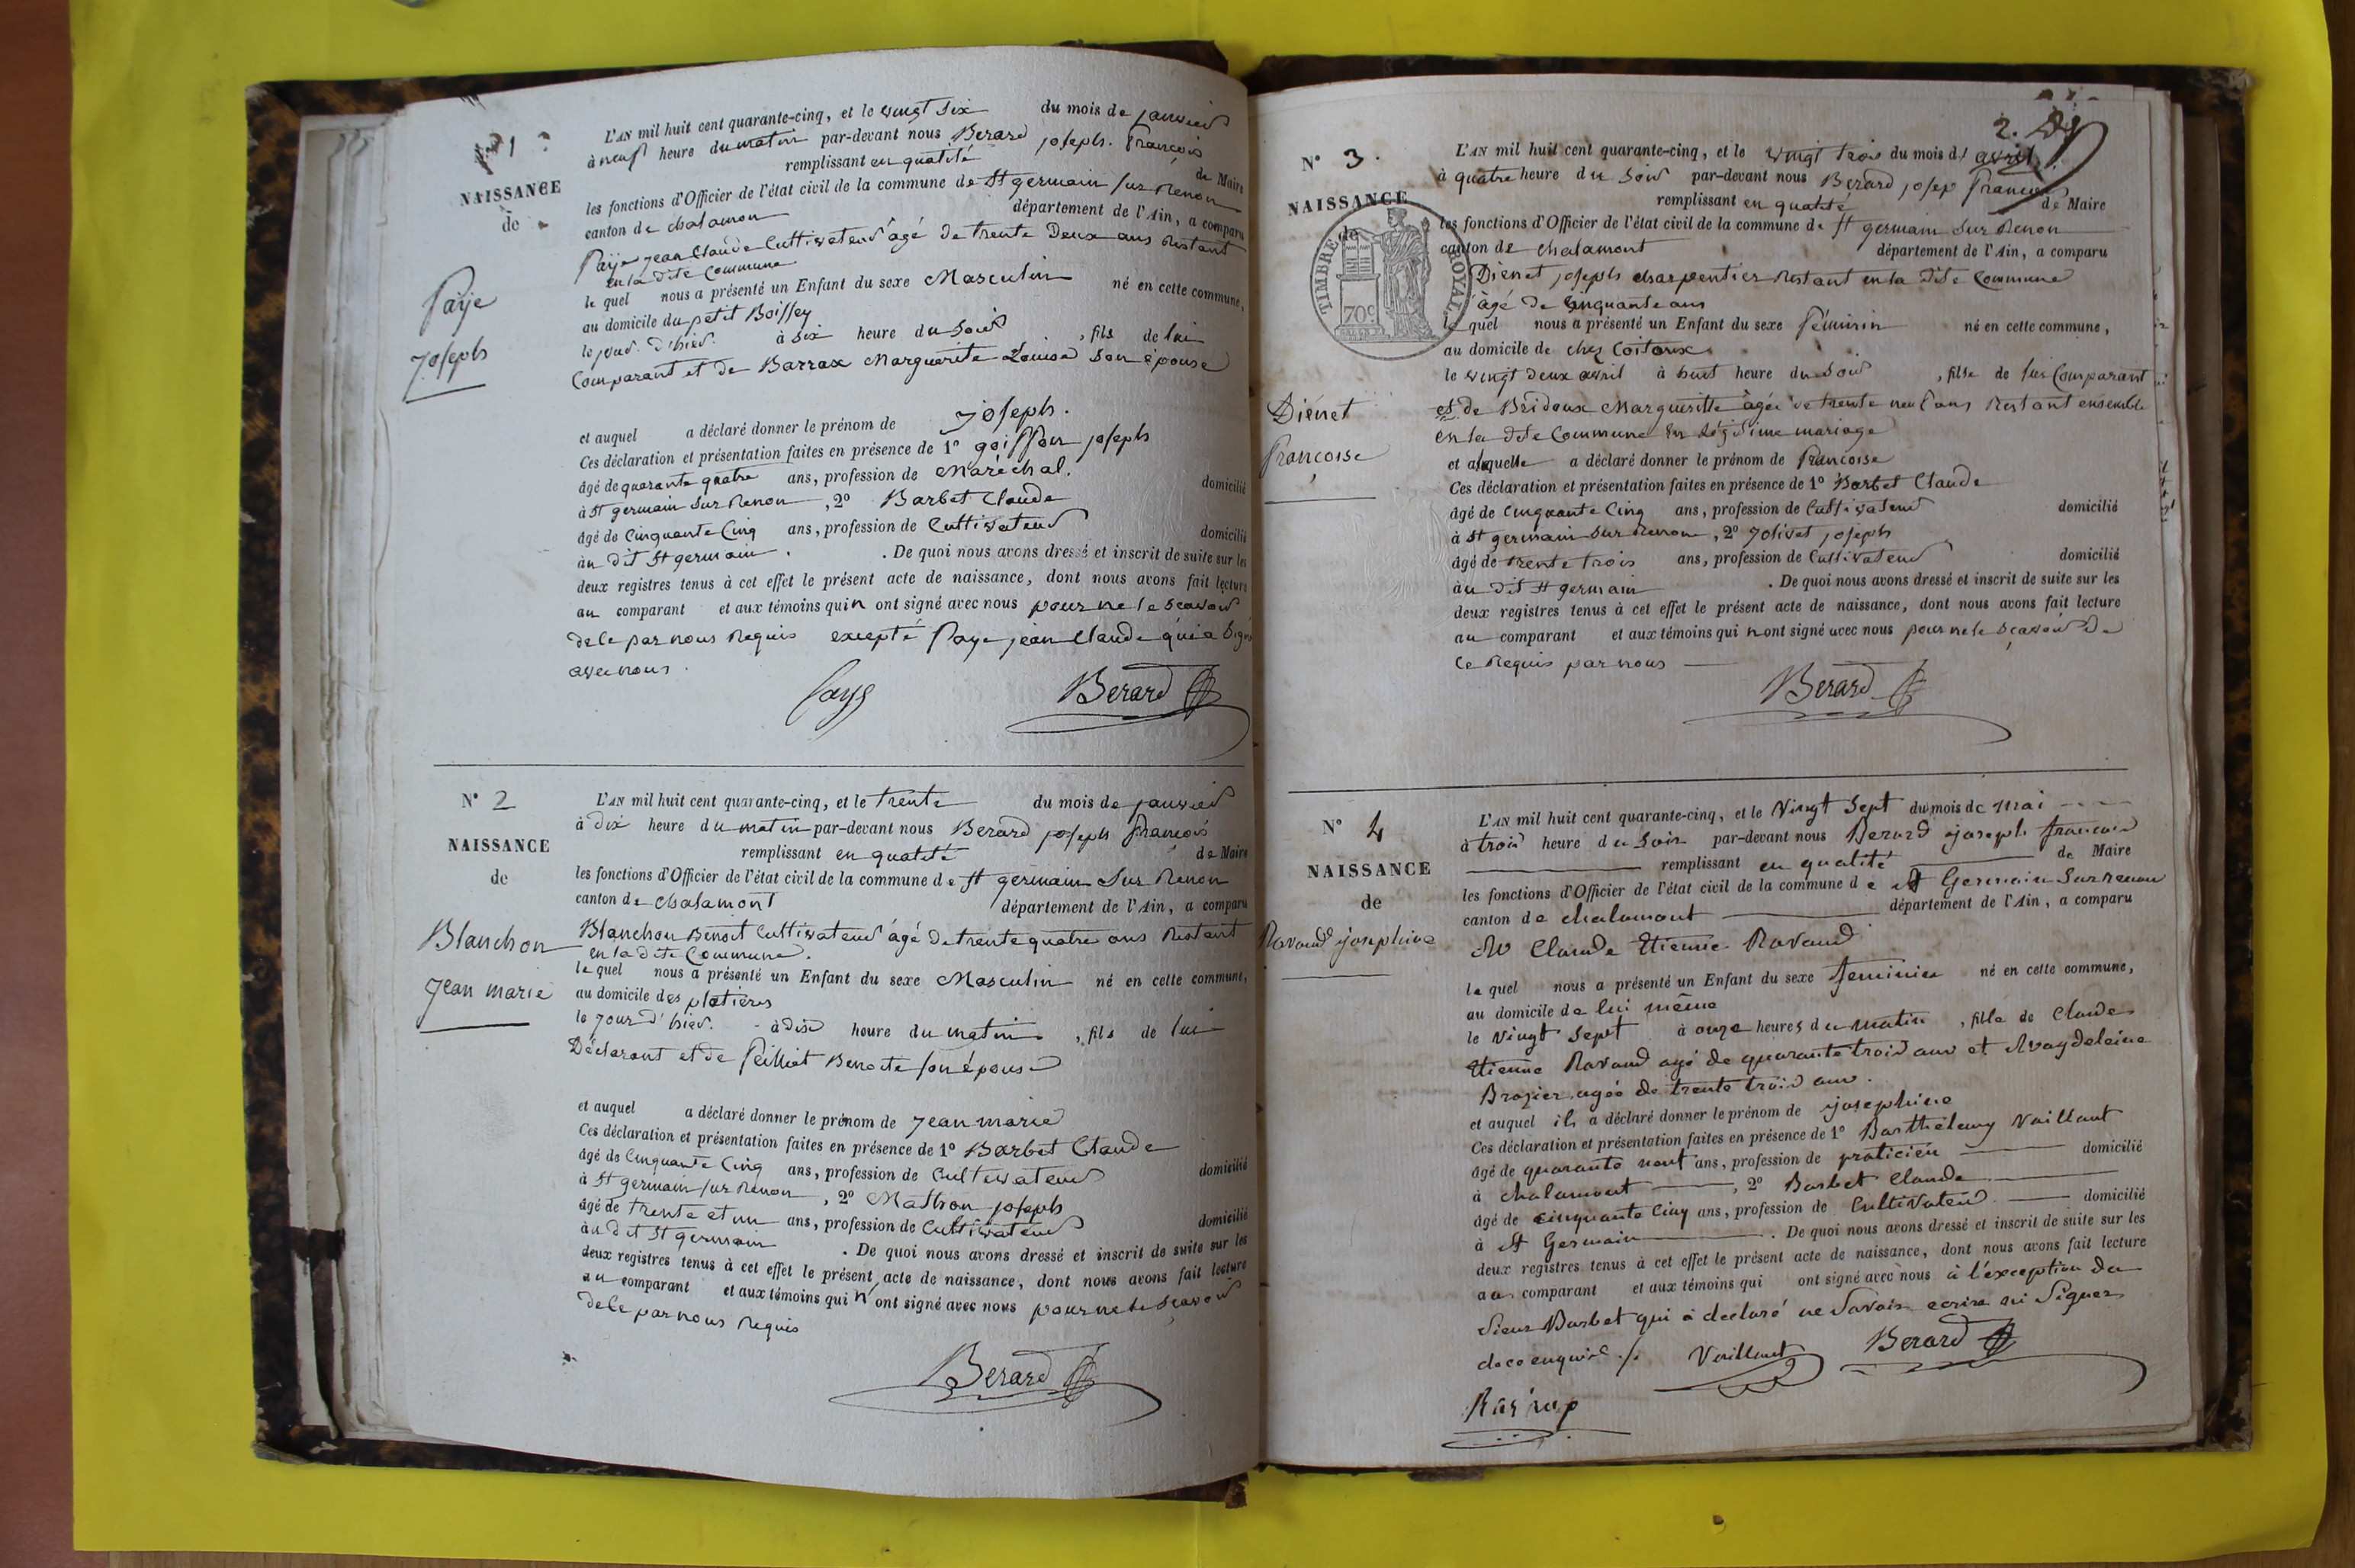 N° 1
NAISSANCE
de
Paÿe
Joseph
L'AN mil huit cent quarante-cinq, et le vingt six du mois de janvier
à neuf heure du matin par-devant nous Berard joseph. François
remplissant en qualité de Maire
les fonctions d'Officier de l'état civil de la commune de St germain sur Renon
canton de chalamon département de l'Ain, a comparu
Paÿe jean Claude Cultivateur âgé de trente Deux ans Restant
en la dite Commune
le quel nous a présenté un Enfant du sexe Masculin né en cette commune,
au domicile du petit Boissey
le jour. d'hier. à six heure du soir , fils de lui
Comparant et de Barrax Marguerite Louise son épouse
et auquel a déclaré donner le prénom de joseph.
Ces déclaration et présentation faites en présence de 1° goiffon joseph
âgé de quarante quatre ans, profession de Maréchal. domicilié
à St germain sur Renon , 2° Barbet Claude
âgé de Cinquante Cinq ans, profession de Cultivateur domicilié
au dit St germain . . De quoi nous avons dressé et inscrit de suite sur les
deux registres tenus à cet effet le présent acte de naissance, dont nous avons fait lecture
au comparant et aux témoins qui n ont signé avec nous pour ne le scavoir
de le par nous Requis excepté Paye jean Claude qui a signé
avec nous.
Paye Berard
N° 2
NAISSANCE
de
Blanchon
Jean marie
L'AN mil huit cent quarante-cinq, et le trente du mois de janvier
à dix heure du matin par-devant nous Berard joseph François
remplissant en qualité de Maire
les fonctions d'Officier de l'état civil de la commune de St germain sur Renon
canton de chalamont département de l'Ain, a comparu
Blanchon Benoit Cultivateur âgé de trente quatre ans Restant
en la dite Commune.
le quel nous a présenté un Enfant du sexe Masculin né en cette commune,
au domicile des platières
le jour d'hier. à dix heure du matin , fils de lui
Déclarant et de Peilliet Benoite son épouse
et auquel a déclaré donner le prénom de jean marie
Ces déclaration et présentation faites en présence de 1° Barbet Claude
âgé de Cinquante Cinq ans, profession de Cultivateur domicilié
à St germain sur Renon , 2° Mathon joseph
âgé de trente et un ans, profession de Cultivateur domicilié
au dit St germain . De quoi nous avons dressé et inscrit de suite sur les
deux registres tenus à cet effet le présent acte de naissance, dont nous avons fait lecture
au comparant et aux témoins qui n'ont signé avec nous pour ne le scavoir
de le par nous Requis
Berard
2.
N° 3.
NAISSANCE
de
TIMBRE ROYAL
70c
Diénet
Françoise
L'AN mil huit cent quarante-cinq, et le vingt trois du mois d'avril
à quatre heure du soir par-devant nous Berard josep François
remplissant en qualité de Maire
les fonctions d'Officier de l'état civil de la commune de St germain sur Renon
canton de chalamont département de l'Ain, a comparu
Dienet joseph charpentier Restant en la dite Commune
âgé de Cinquante ans
le quel nous a présenté un Enfant du sexe féminin né en cette commune,
au domicile de chez Coitoux
le vingt deux avril à huit heure du soir , fille de lui Comparant
et de Bridoux Margueritte âgée de trente neuf ans Restant ensemble
en la dite Commune en Légitime mariage
et a laquelle a déclaré donner le prénom de Francoise
Ces déclaration et présentation faites en présence de 1° Barbet Claude
âgé de Cinquante Cinq ans, profession de Cultivateur domicilié
à St germain sur Renon , 2° Jolivet joseph
âgé de trente trois ans, profession de Cultivateur domicilié
au dit St germain . De quoi nous avons dressé et inscrit de suite sur les
deux registres tenus à cet effet le présent acte de naissance, dont nous avons fait lecture
au comparant et aux témoins qui n ont signé avec nous pour ne le sçavoir de
ce Requis par nous
Berard
N° 4
NAISSANCE
de
Ravaud josephine
L'AN mil huit cent quarante-cinq, et le Vingt Sept du mois de Mai
à trois heure du Soir par-devant nous Berard joseph francois
remplissant en qualité de Maire
les fonctions d'Officier de l'état civil de la commune de St Germain Sur renon
canton de chalamont département de l'Ain, a comparu
Mr Claude Etienne Ravaud
le quel nous a présenté un Enfant du sexe feminin né en cette commune,
au domicile de lui même
le Vingt Sept à onze heures du matin , fille de Claude
Etienne Ravaud agé de quarante trois ans et Magdeleine
Brosier agée de trente trois ans.
et auquel ils a déclaré donner le prénom de josephine
Ces déclaration et présentation faites en présence de 1° Barthélemy Vaillant
âgé de quarante neuf ans, profession de praticien domicilié
à chalamont , 2° Barbet Claude
âgé de cinquante Cinq ans, profession de Cultivateur domicilié
à St Germain . De quoi nous avons dressé et inscrit de suite sur les
deux registres tenus à cet effet le présent acte de naissance, dont nous avons fait lecture
au comparant et aux témoins qui ont signé avec nous à l'éxception du
Sieur Barbet qui a declaré ne Savoir ecrire ni Signer
de ce enquis ./. Vaillant Berard